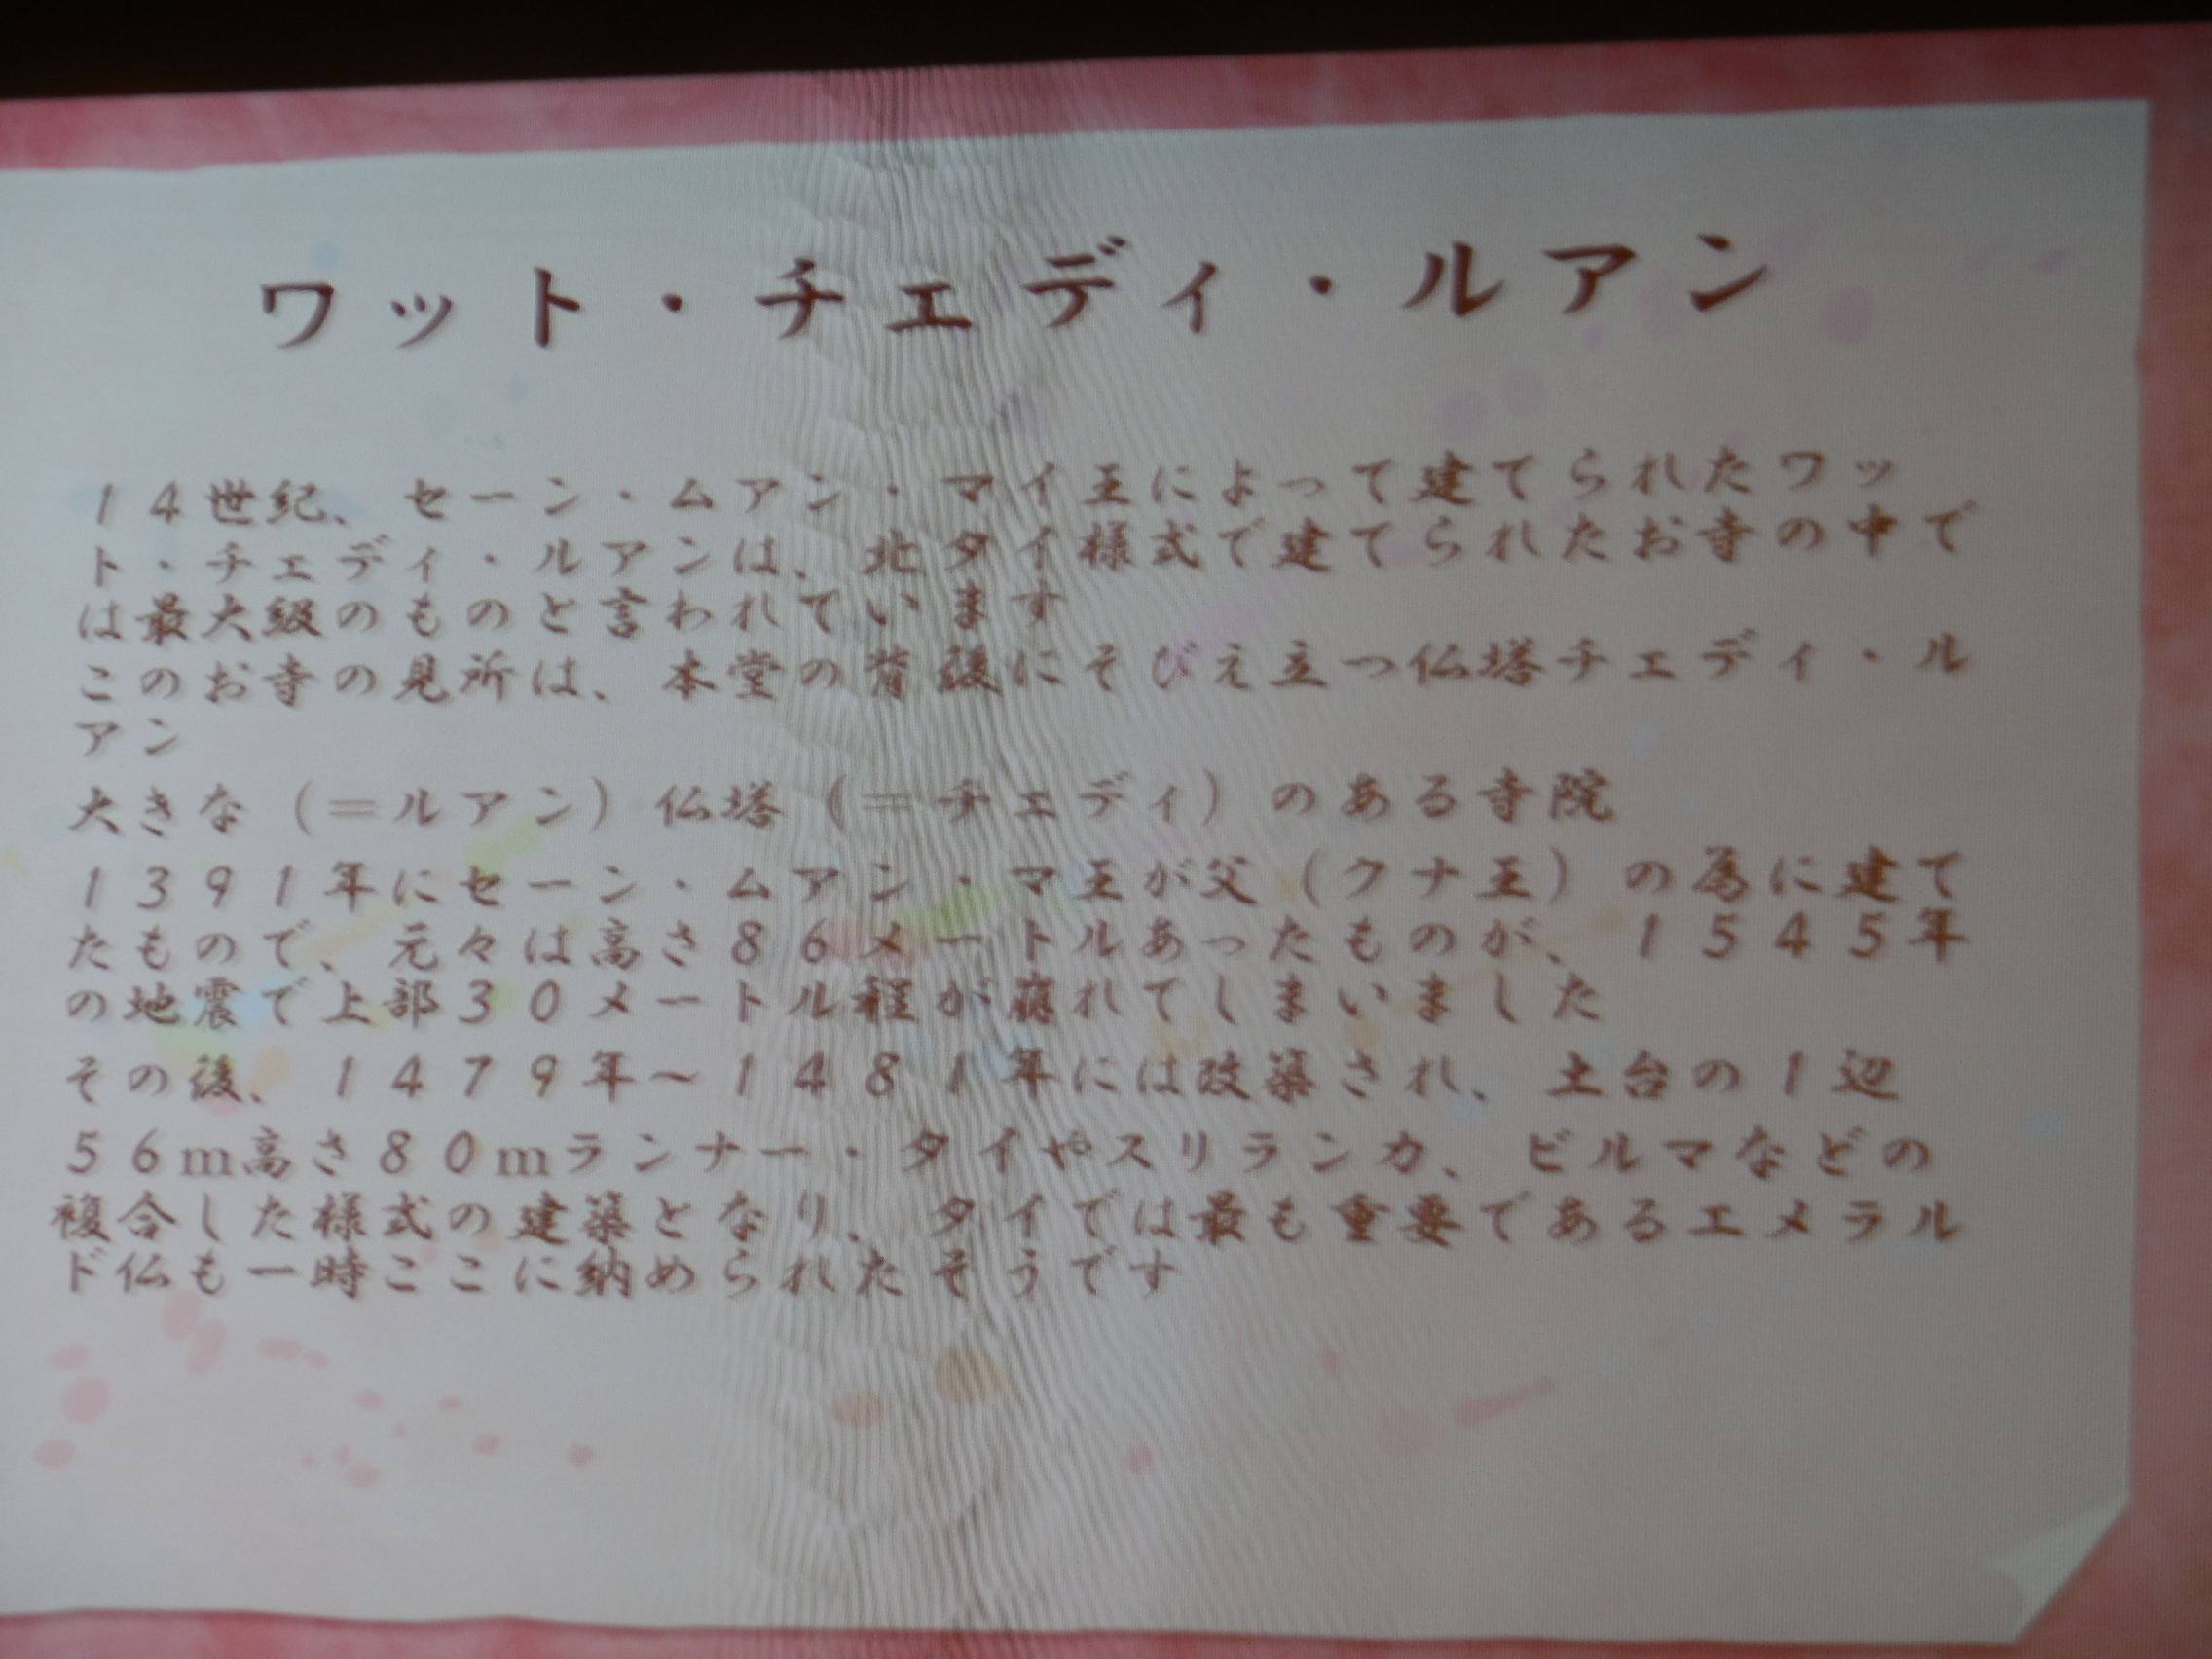 ワット・チェディ・ルアン
14世紀、セーン・ムアン・マイ王によって建てられたワッ
ト・チェディ・ルアンは、北タイ様式で建てられたお寺の中で
は最大級のものと言われています
このお寺の見所は、本堂の背後にそびえ立つ仏塔チェディ・ル
アン
大きな（＝ルアン）仏塔（＝チェディ）のある寺院
1391年にセーン・ムアン・マ王が父（クナ王）の為に建て
たもので、元々は高さ86メートルあったものが、1545年
の地震で上部30メートル程が崩れてしまいました
その後、1479年～1481年には改築され、土台の1辺
56m高さ80mランナー・タイやスリランカ、ビルマなどの
複合した様式の建築となり、タイでは最も重要であるエメラル
ド仏も一時ここに納められたそうです